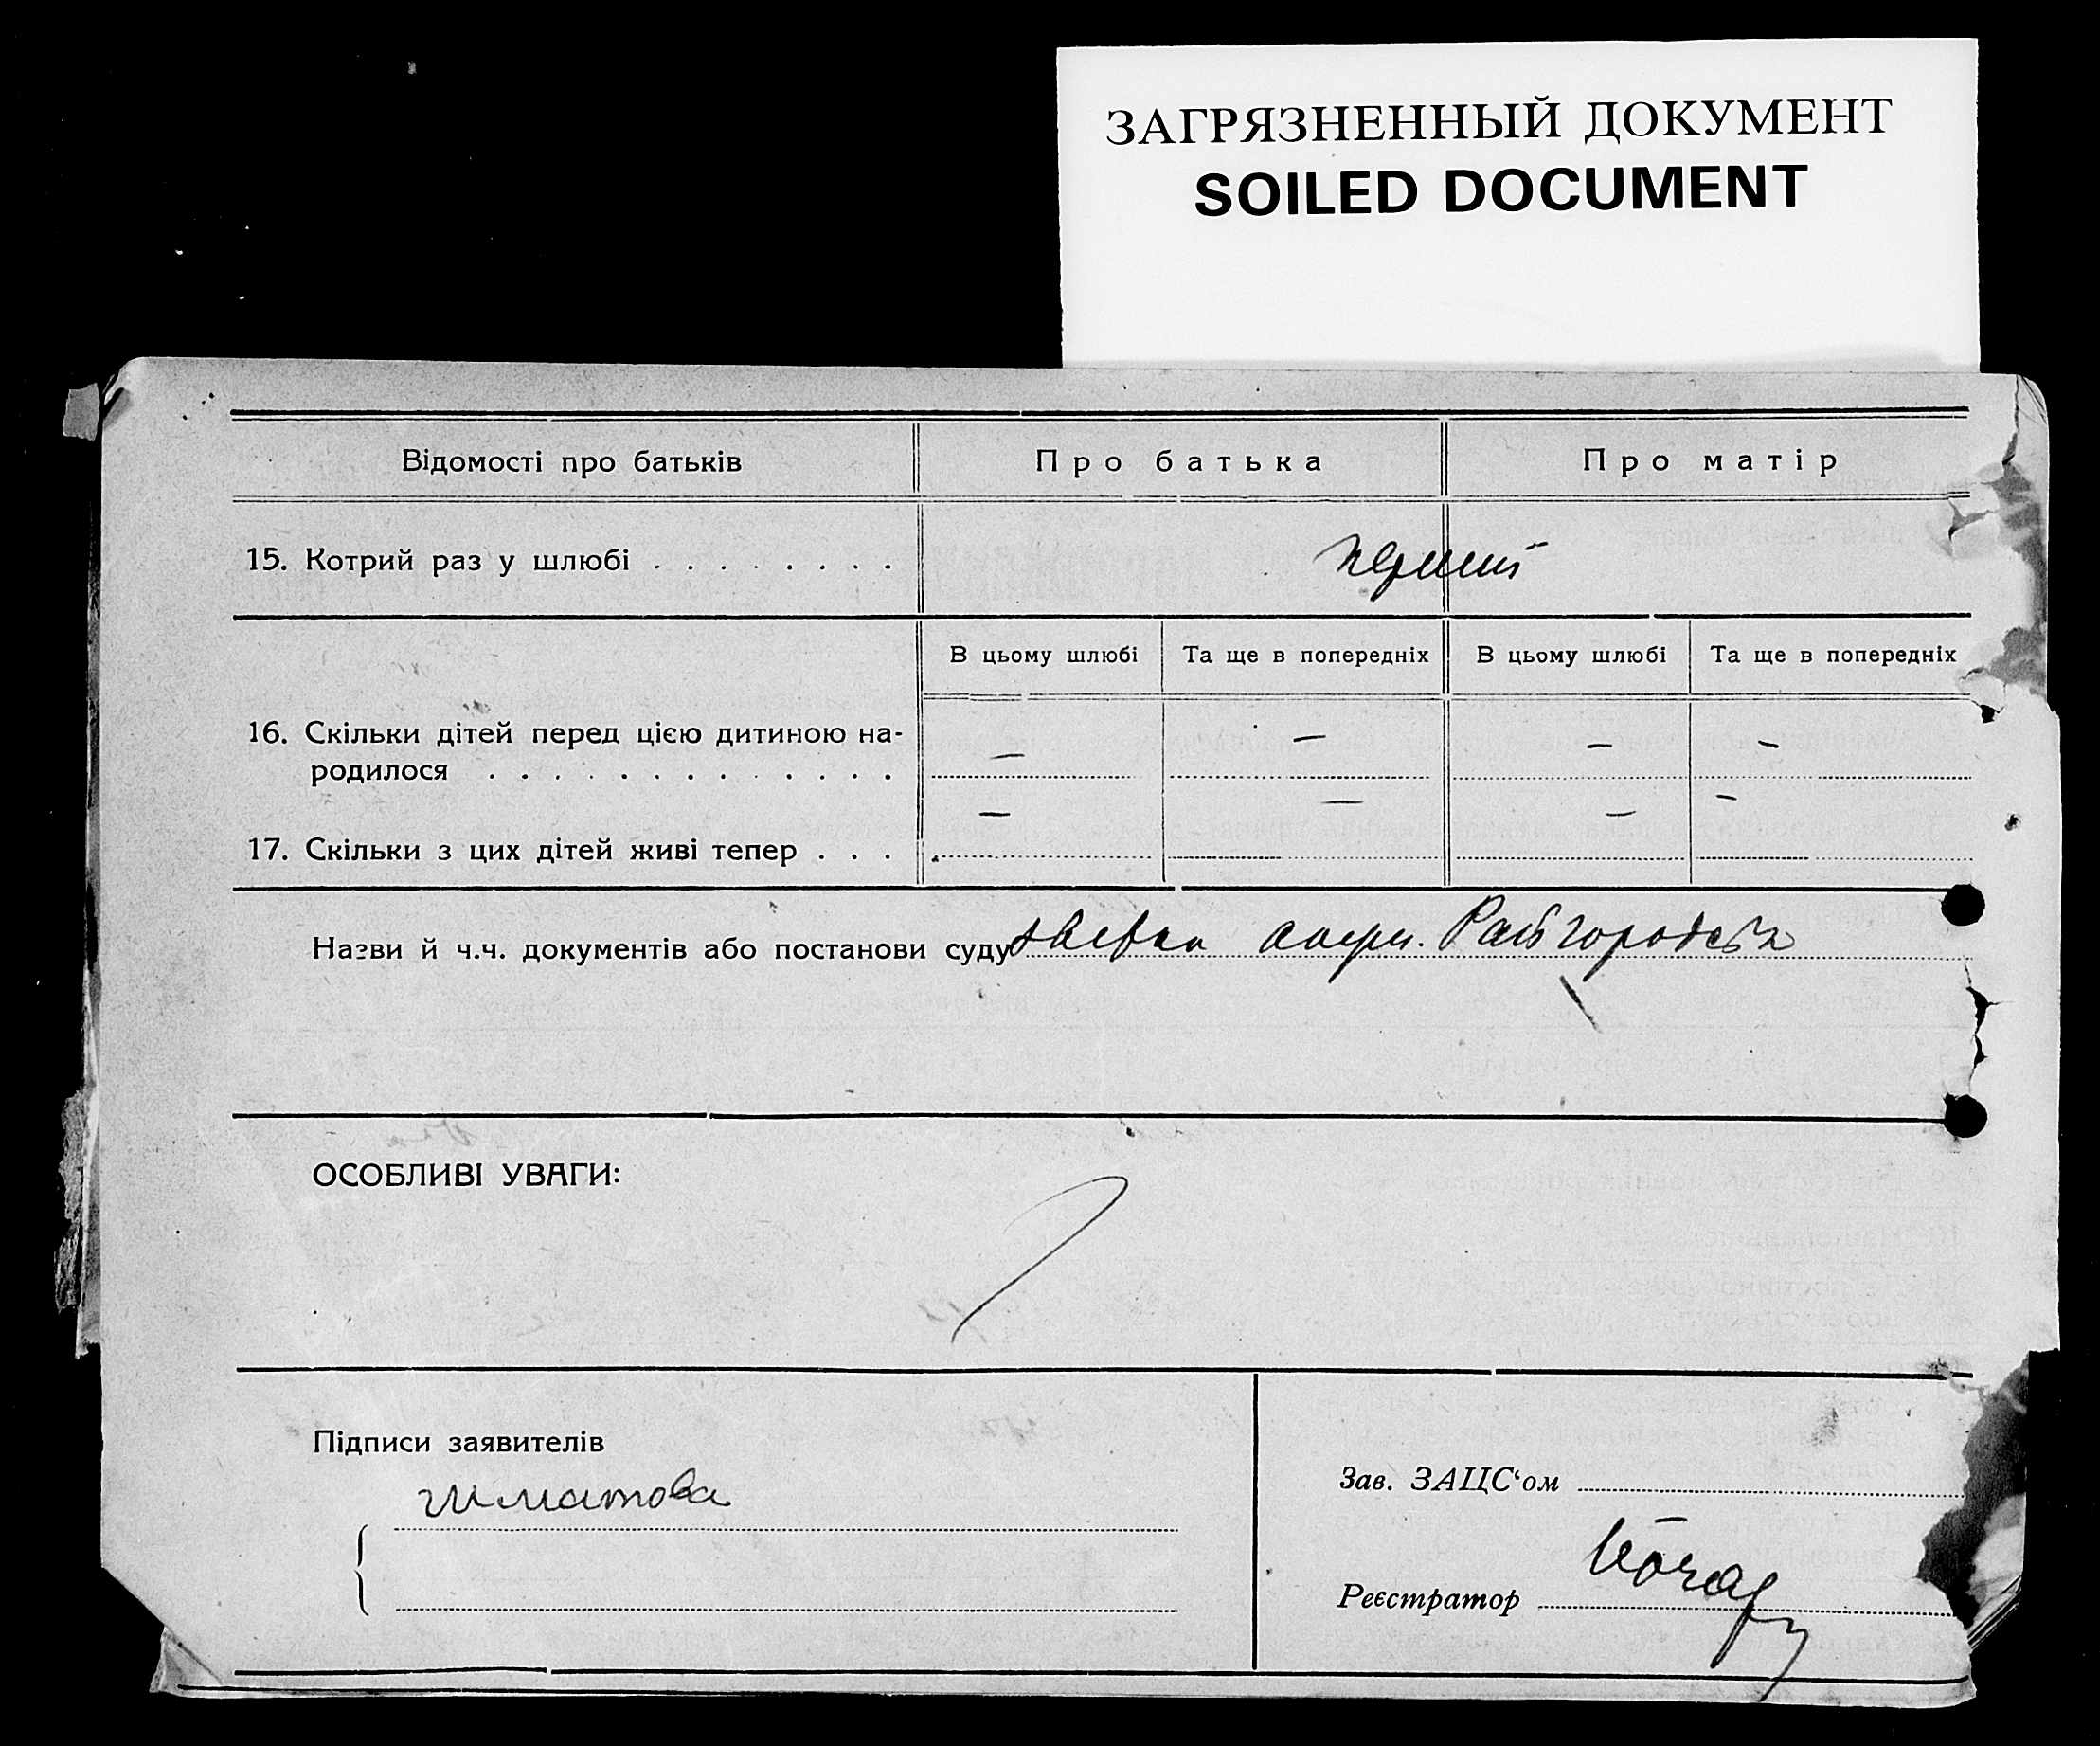 ЗАГРЯЗНЕННЫЙ ДОКУМЕНТ
SOILED DOCUMENT
Відомості про батьків Про батька Про матір
15. Котрий раз у шлюбі . . . . . . . . перший
В цьому шлюбі Та ще в попередніх В цьому шлюбі Та ще в попередніх
16. Скільки дітей перед цією дитиною на-
родилося . . . . . . . . . . . . . — — — —
— — — —
17. Скільки з цих дітей живі тепер . . .
Назви й ч.ч. документів або постанови суду
ОСОБЛИВІ УВАГИ:
Підписи заявителів
Зав. ЗАЦС‘ом
Реєстратор